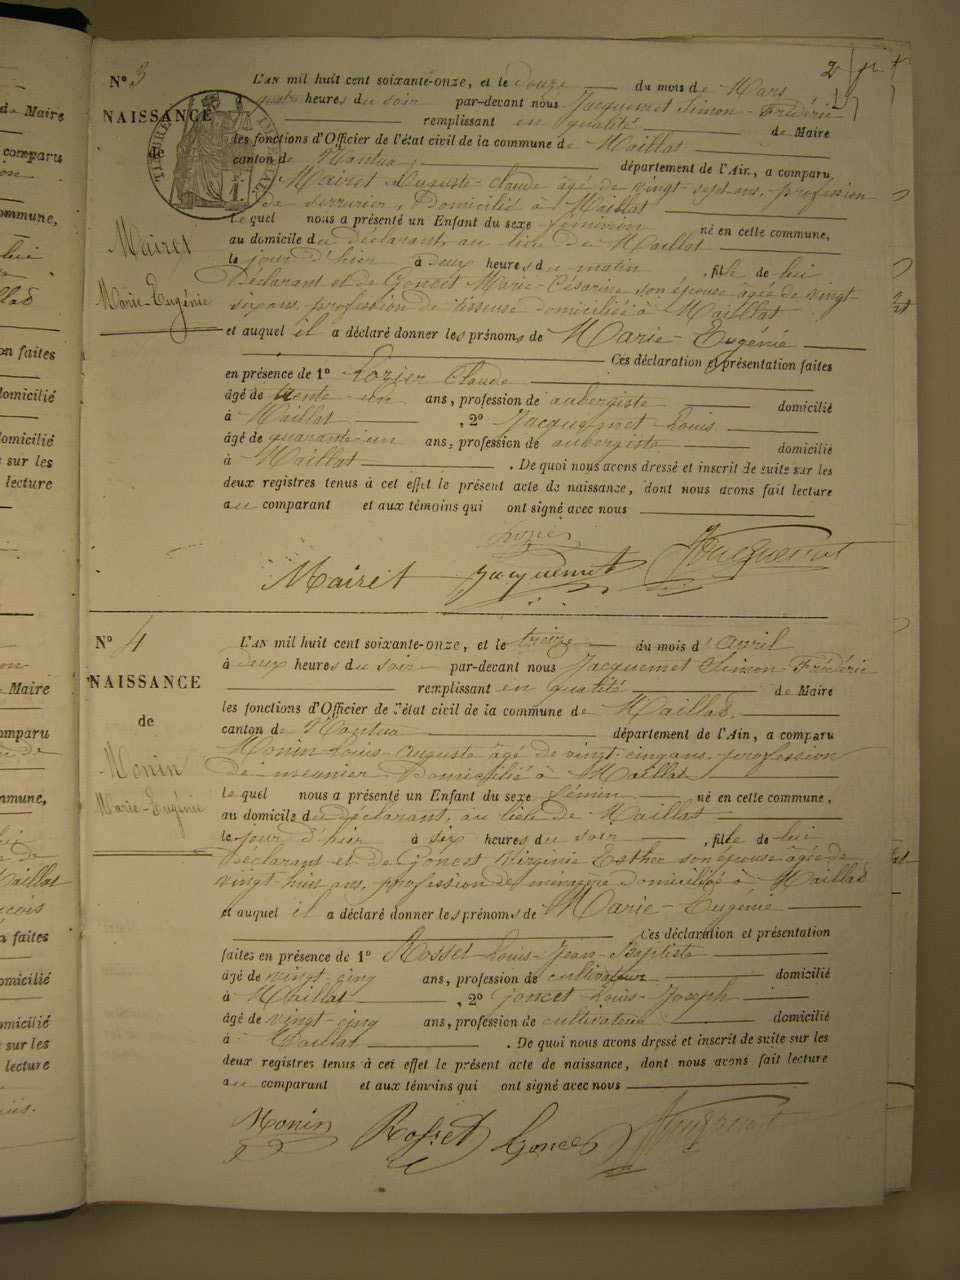 N° 3
NAISSANCE
de
Mairet
Marie-Eugénie
L'AN mil huit cent soixante-onze, et le douze du mois de Mars
quatre heures du soir par-devant nous Jacquemet Simon-Frédéric
remplissant en qualité de Maire
les fonctions d'Officier de l'état civil de la commune de Maillat
canton de Nantua, département de l'Ain, a comparu
Mairet Auguste-Claude âgé de vingt-sept ans, profession
de serrurier, domicilié à Maillat
Le quel nous a présenté un Enfant du sexe féminin né en cette commune,
au domicile du déclarant, au lieu de Maillat
le jour d'hier à deux heures du matin, fille de lui
Déclarant et de Goncet Marie-Césarine son épouse âgée de vingt-
six ans, profession de tisseuse domiciliée à Maillat
et auquel il a déclaré donner les prénoms de Marie-Eugénie
Ces déclaration et présentation faites
en présence de 1° Rozier Claude
âgé de trente-un ans, profession de aubergiste domicilié
à Maillat, 2° Jacquemet Louis
âgé de quarante-un ans, profession de aubergiste domicilié
à Maillat. De quoi nous avons dressé et inscrit de suite sur les
deux registres tenus à cet effet le présent acte de naissance, dont nous avons fait lecture
au comparant et aux témoins qui ont signé avec nous
Mairet Jacquemet Jacquemet
N° 4
NAISSANCE
de
Monin
Marie-Eugénie
L'AN mil huit cent soixante-onze, et le treize du mois d'avril
à deux heures du soir par-devant nous Jacquemet Simon-Frédéric
remplissant en qualité de Maire
les fonctions d'Officier de l'état civil de la commune de Maillat,
canton de Nantua département de l'Ain, a comparu
Monin Louis-Auguste âgé de vingt-cinq ans, profession
de meunier domicilié à Maillat
Le quel nous a présenté un Enfant du sexe fémin né en cette commune,
au domicile du déclarant, au lieu de Maillat
le jour d'hier à six heures du soir, fille de lui
Déclarant et de Goncet Virginie Esther son épouse âgée de
vingt-huit ans, profession de ménagère domiciliée à Maillat
et auquel il a déclaré donner les prénoms de Marie-Eugénie
Ces déclaration et présentation
faites en présence de 1° Rosset Louis-Jean-Baptiste
âgé de vingt-cinq ans, profession de cultivateur domicilié
à Maillat, 2° Goncet Louis-Joseph
âgé de vingt-cinq ans, profession de cultivateur domicilié
à Maillat. De quoi nous avons dressé et inscrit de suite sur les
deux registres tenus à cet effet le présent acte de naissance, dont nous avons fait lecture
au comparant et aux témoins qui ont signé avec nous
Monin Rosset Goncet Jacquemet